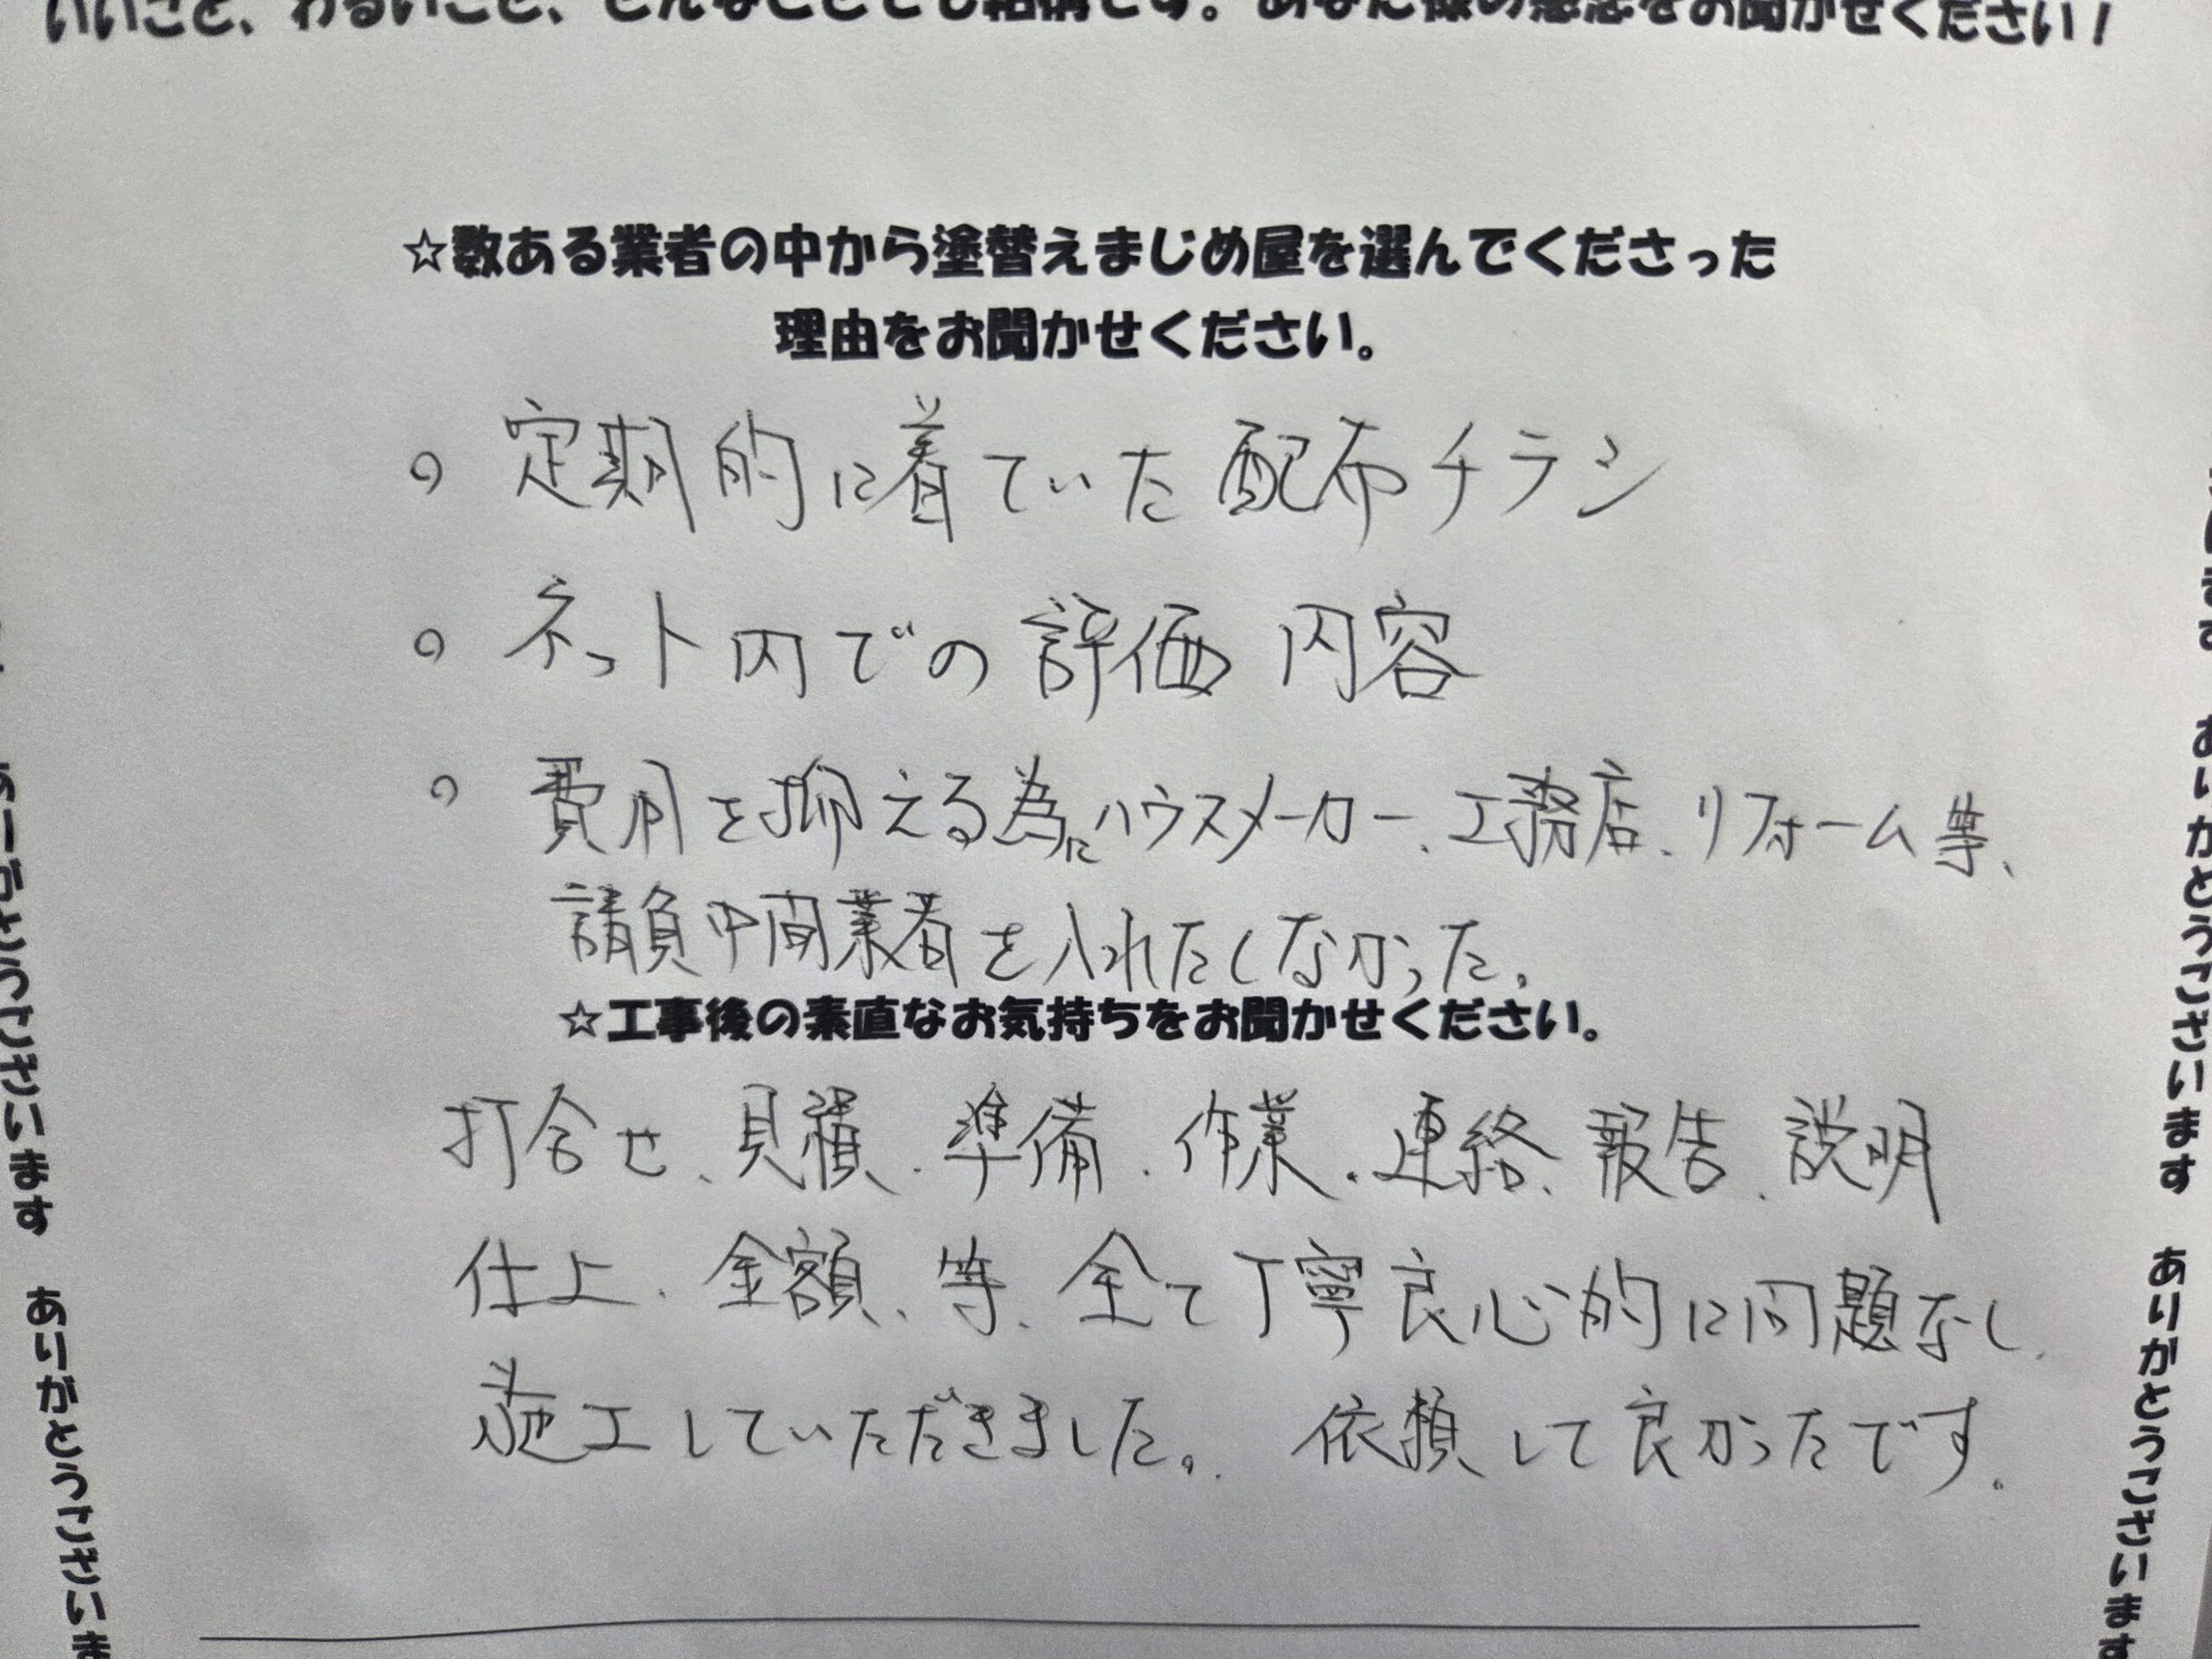 いいこと、わるいこと、どんなことでも結構です。あなた様の感想をお聞かせください！
☆数ある業者の中から塗替えまじめ屋を選んでくださった
理由をお聞かせください。
。定期的に着ていた配布チラシ
。ネット内での評価内容
。費用を抑える為にハウスメーカー、工務店、リフォーム等、
請負中間業者を入れたくなかった。
☆工事後の素直なお気持ちをお聞かせください。
打合せ、見積、準備、作業、連絡、報告、説明
仕上、金額、等、全て丁寧良心的に問題なし、
施工していただきました。依頼して良かったです。
ありがとうございます
ありがとうございま
ありがとうございます
ありがとうございます